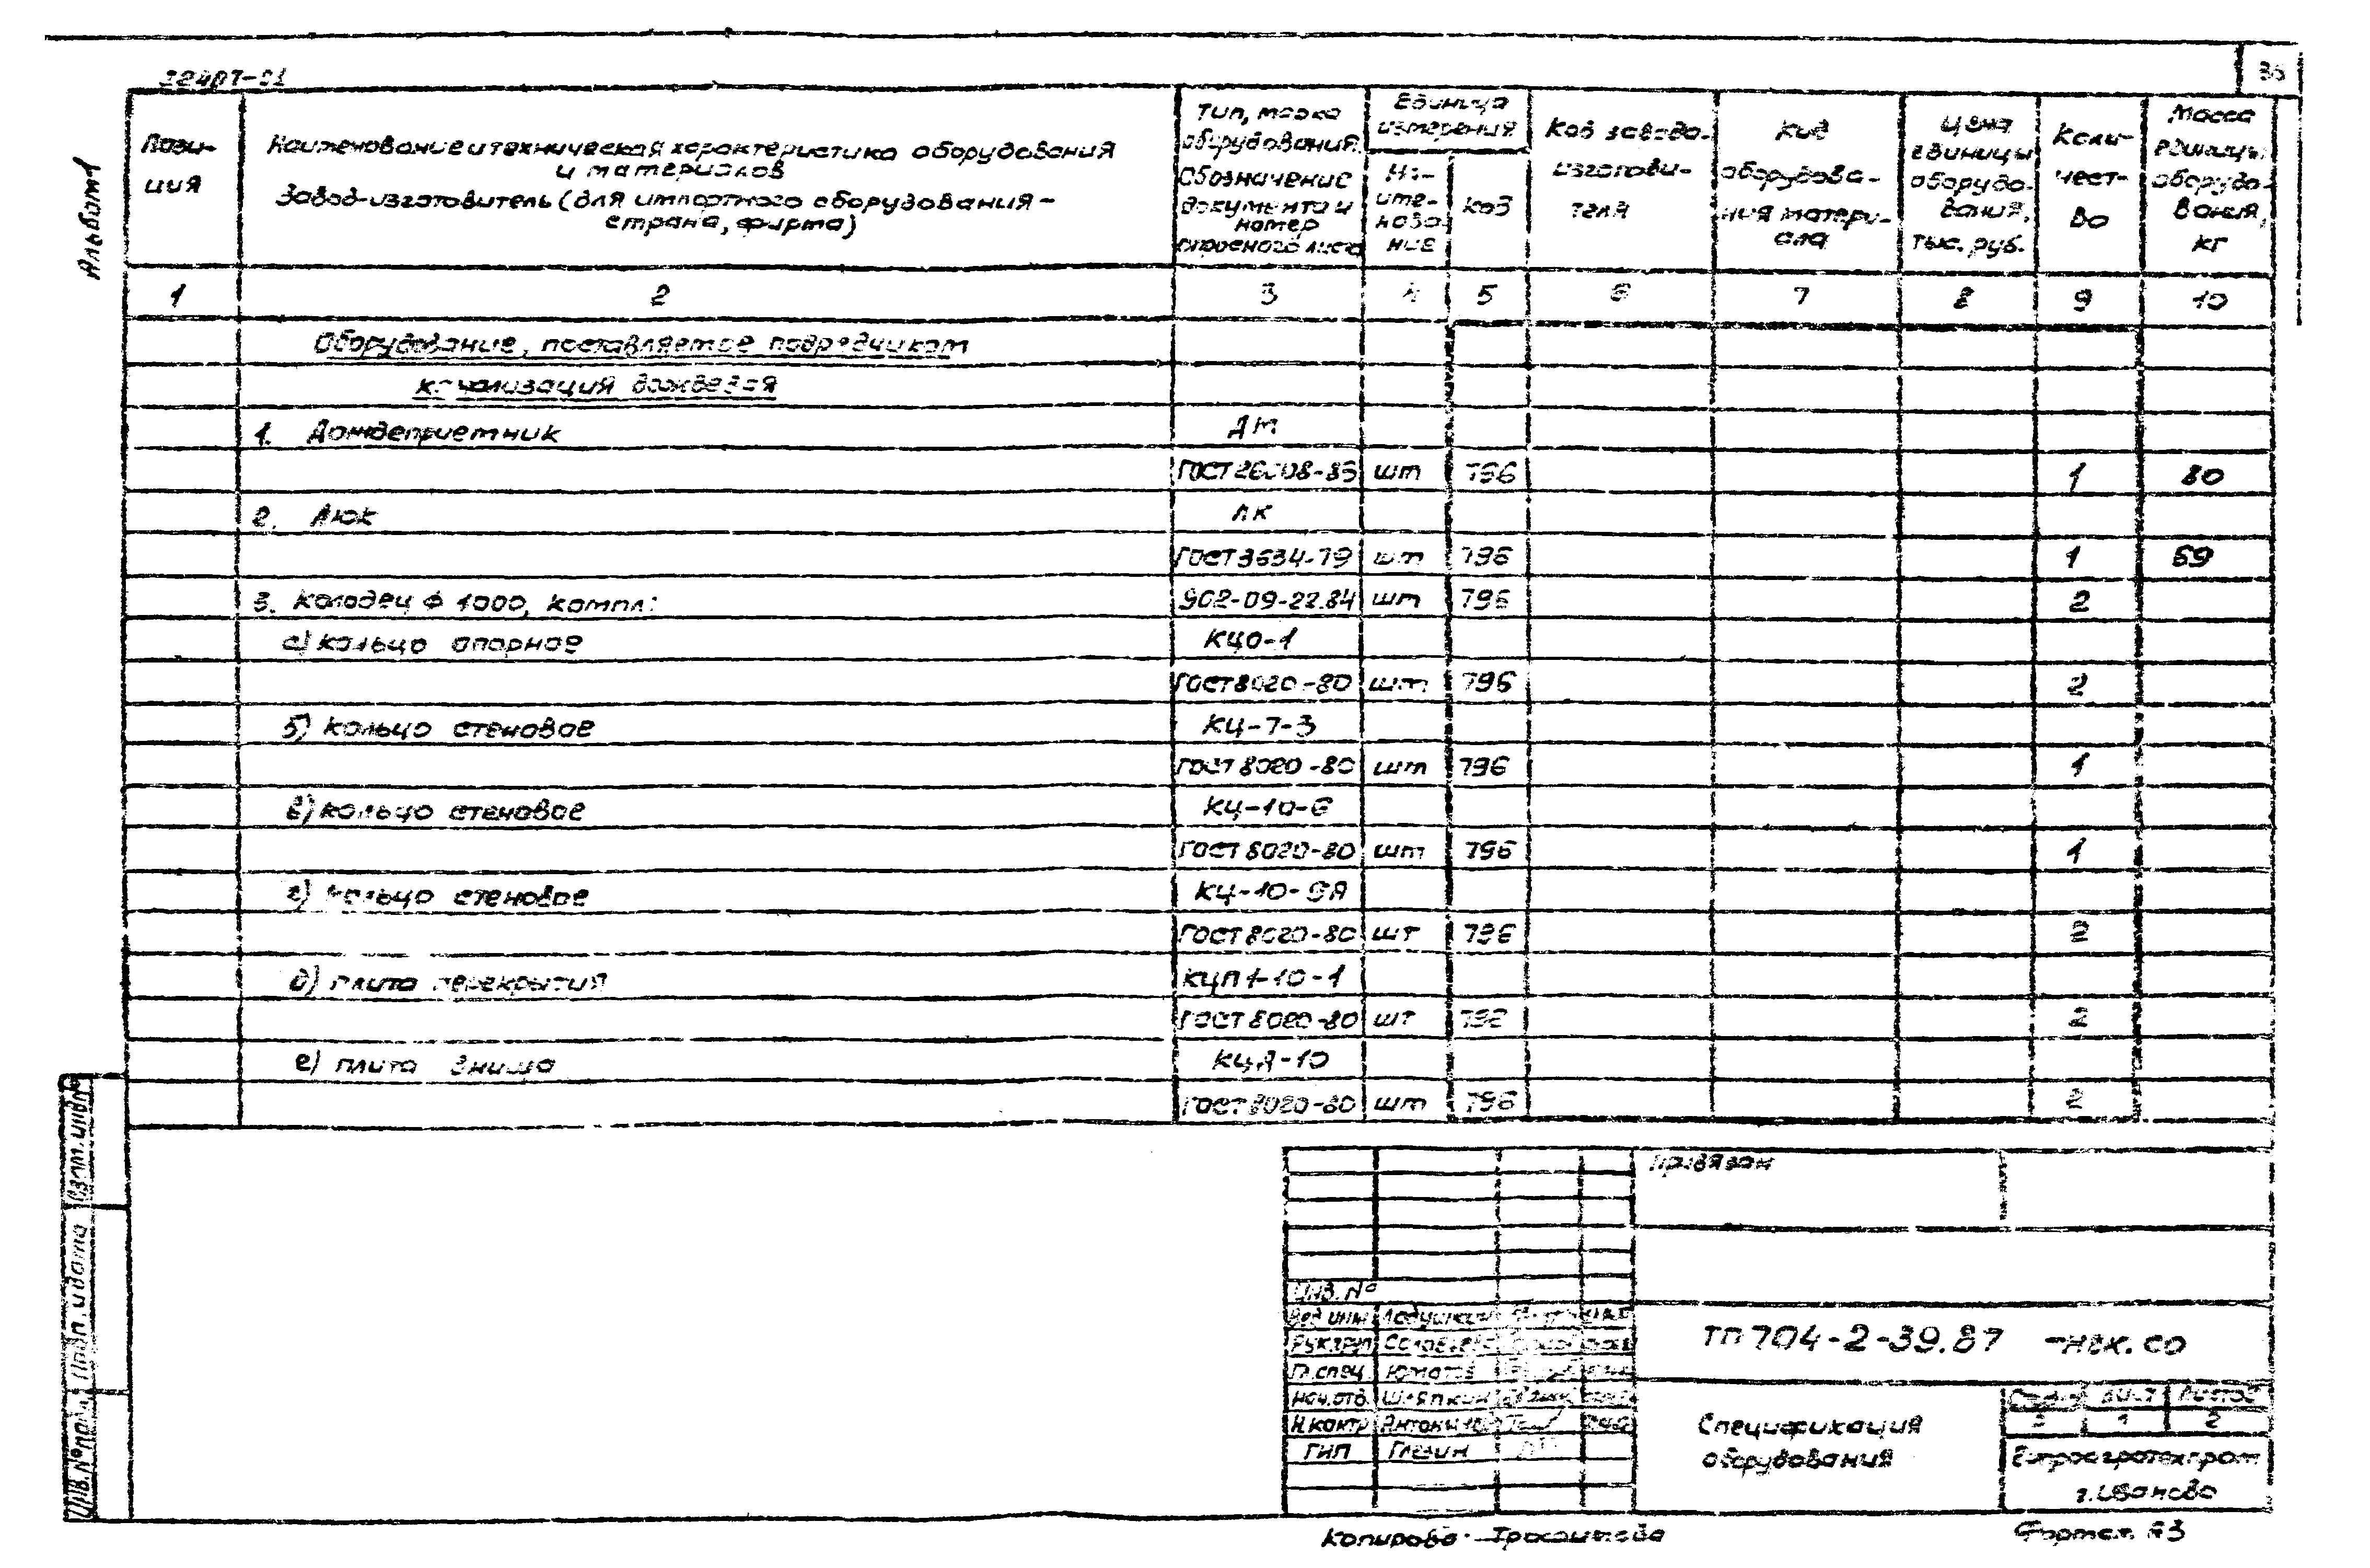 Альбом 1
Пози-
ция
Наименование и техническая характеристика оборудования
и материалов
Завод-изготовитель (для импортного оборудования –
страна, фирма)
Тип, марка
оборудования.
Обозначение
документа и
номер
опросного листа
Единица
измерения
На-
име-
нова-
ние
Код
Код завода-
изготови-
теля
Код
оборудова-
ния матери-
ала
Цена
единицы
оборудо-
вания,
тыс. руб.
Коли-
чест-
во
Масса
единицы
оборудо-
вания,
кг
1 2 3 4 5 6 7 8 9 10
Оборудование, поставляемое подрядчиком
канализация дождевая
1. Дождеприемник ДМ
шт 796 1 80
2. Люк ЛК
ГОСТ 3634-79 шт 796 1
3. Колодец ф 1000, компл: 902-09-22.84 шт 796 2
а) кольцо опорное КЦО-1
ГОСТ 8020-80 шт 796 2
б) кольцо стеновое КЦ-7-3
ГОСТ 8020-80 шт 796 1
в) кольцо стеновое КЦ-10-6
ГОСТ 8020-80 шт 796 1
г) кольцо стеновое КЦ-10-9А
ГОСТ 8020-80 шт 796 2
д) плита перекрытия КЦП1-10-1
ГОСТ 8020-80 шт 796 2
е) плита днища КЦД-10
ГОСТ 8020-80 шт 796 2
Привязан
Инв. №
Вед. инж
Рук. груп
Гл. спец.
Нач. отд. Шляпкин
Н. контр
ГИП
ТП 704-2-39.87 -НВК.СО
Спецификация
оборудования
Стадия Лист Листов
1 2
Гипроагротехпром
г. Иваново
Взам. инв №
Подп. и дата
Инв. № подл.
Копировал
Формат А3